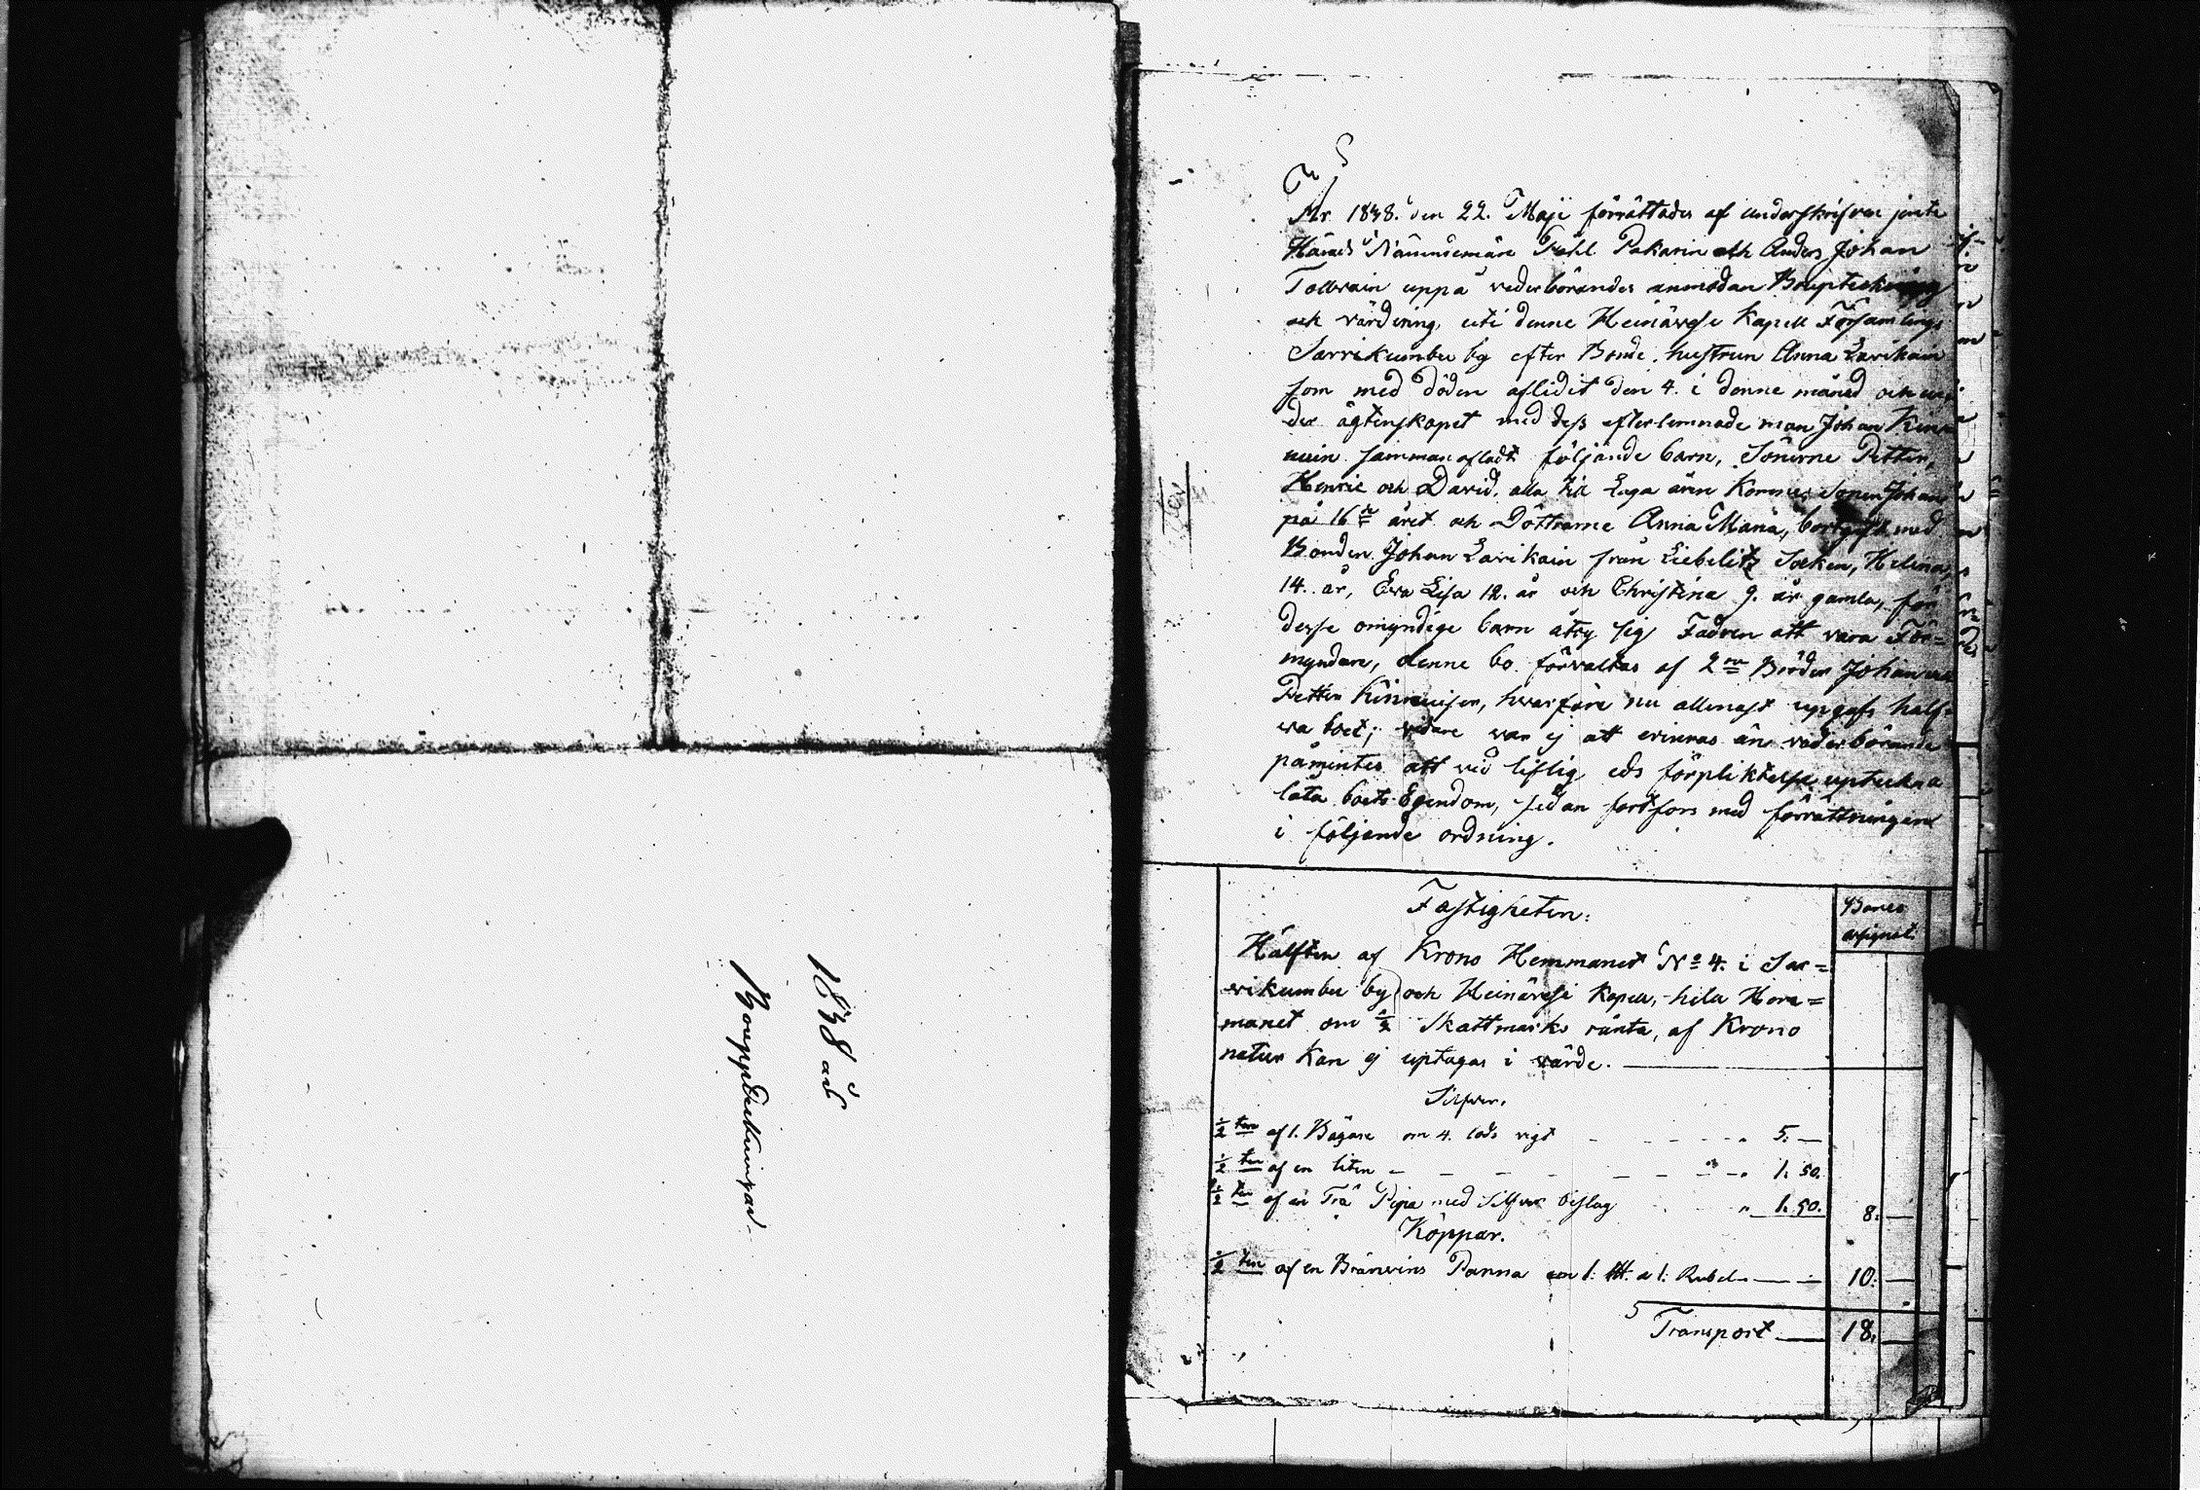 1838 års
Bouppteckningar
År 1838. den 22. Maji förrättades af underskrifven jemte
Härads Nämndemäre Påhl Pakarin och Anders Johan
Tolvain uppå vederbörandes anmodan Bouptekning
och värdering, uti denne Heinävesi Kapell Församlings
Sarvikumbu by efter Bonde hustrun Anna Lavikain
som med döden aflidit den 4. i denne månad och un-
der ägtenskapet med dess efterlemnade man Johan Kinn
uin sammanaflat följande barn, Sönerne Petter,
Henric och David, alla til Laga åren Komne, Sonen Johan
på 16de året och Döttrarne Anna Maria, bortgift med
Bonden Johan Lavikain från Liebelitz Socken, Helena,
14. år, Eva Lisa 12. år och Christina 9. år gamla, för
desse omyndige barn åtog sig Fadren att vara För=
myndare, denne bo förvaltas af 2ne Bröder Johan och
Petter Kinnuisen, hvarföre nu allenast upgafs half-
va boet; vidare var ej att erinras än vederbörande
påmintes att vid liflig eds förpliktelse upteckna
låta boets Egendom, sedan fortfors med förrättningen
i följande ordning.
Fastigheten:
Banco
assignat.
Hälften af Krono Hemmanet No 4. i Sar=
vikumbu by och Heinävesi Kapell, hela Hem=
manet om ½ Skattmarks ränta, af Krono
natur Kan ej uptagas i värde.
Silfver.
½ ten af 1. Bägare om 4. lods vigt - - - - " 5. —
½ ten af en liten - - - - - - " 1. 50.
½ ten af en Trä Pipa med Silfver beslag " 1. 50. 8. —
Koppar.
½ ten af en Bränvins Panna om 1. ltt. a 1. Rubel — 10. —
Transport — 18. —